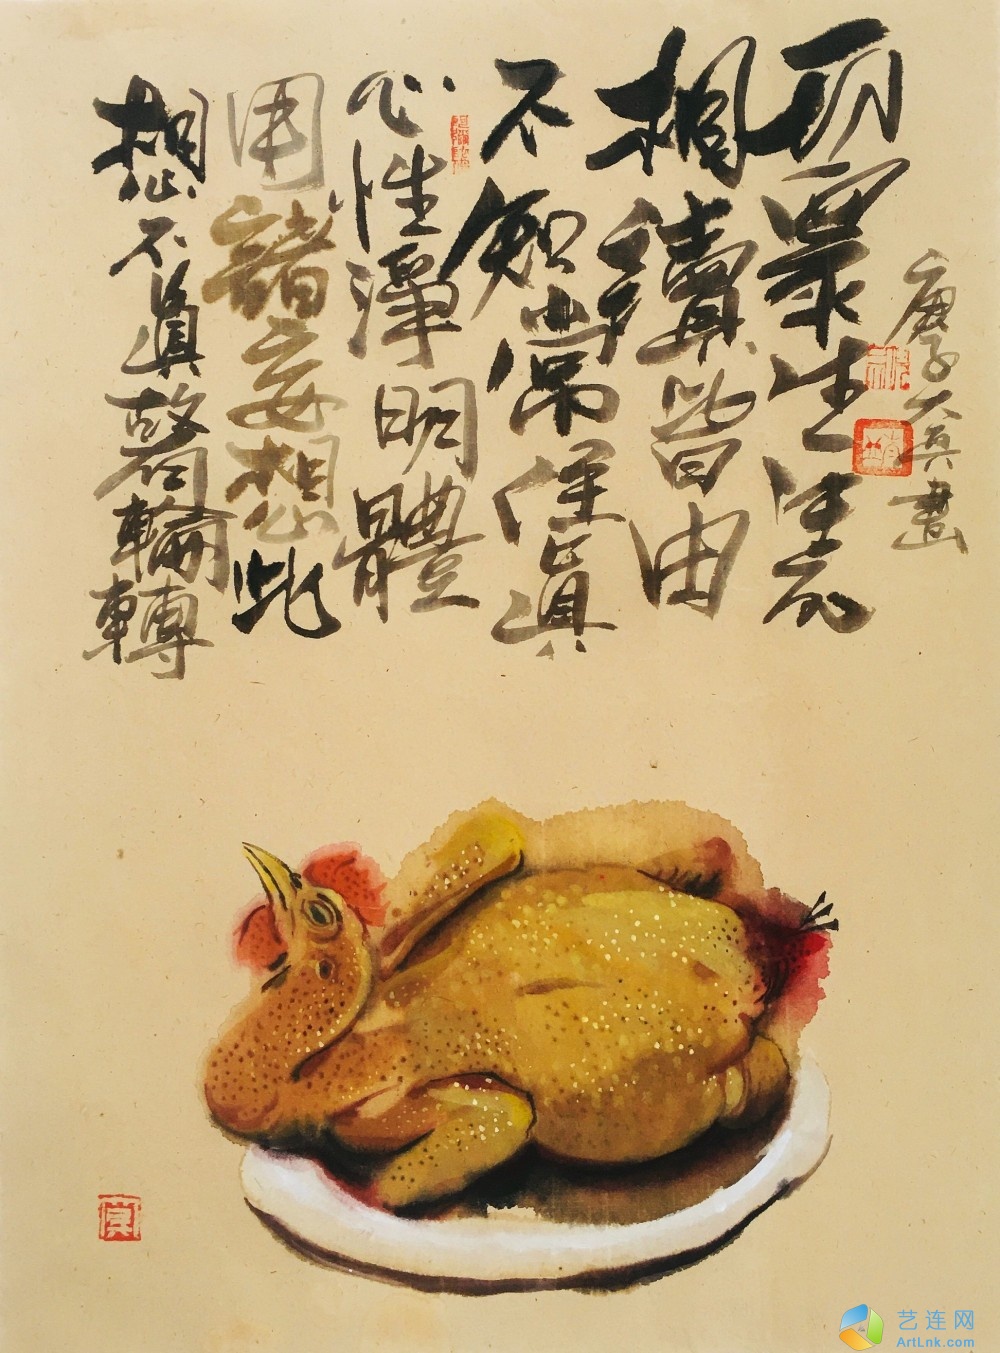 一切眾生生死
相續皆由
不知常住真
心性淨明體
用諸妄想此
想不真故有輪轉
庚子 畫
艺连网
ArtLnk.com